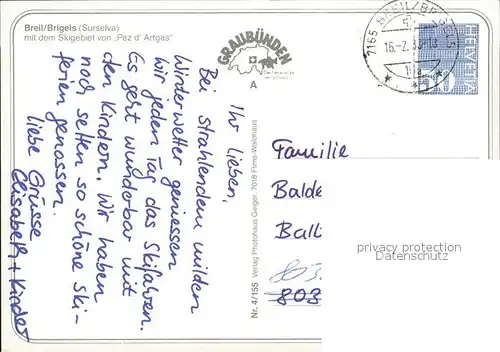 Breil/Brigels (Surselva)
mit dem Skigebiet von "Pez d' Artgas"
GRAUBÜNDEN
A
7165 BREIL/BRIGELS
16.-2.
HELVETIA
Ihr Lieben,
Bei strahlendem milden
Winterwetter geniessen
wir jeden Tag das Skifahren.
Es geht wunderbar mit
den Kindern. Wir haben
noch selten so schöne Ski-
ferien genossen.
Liebe Grüsse
Elisabeth + Kinder
Nr. 4/155 Verlag Photohaus Geiger, 7018 Flims-Waldhaus
Familie
Balde
Balt
803
privacy protection
Datenschutz